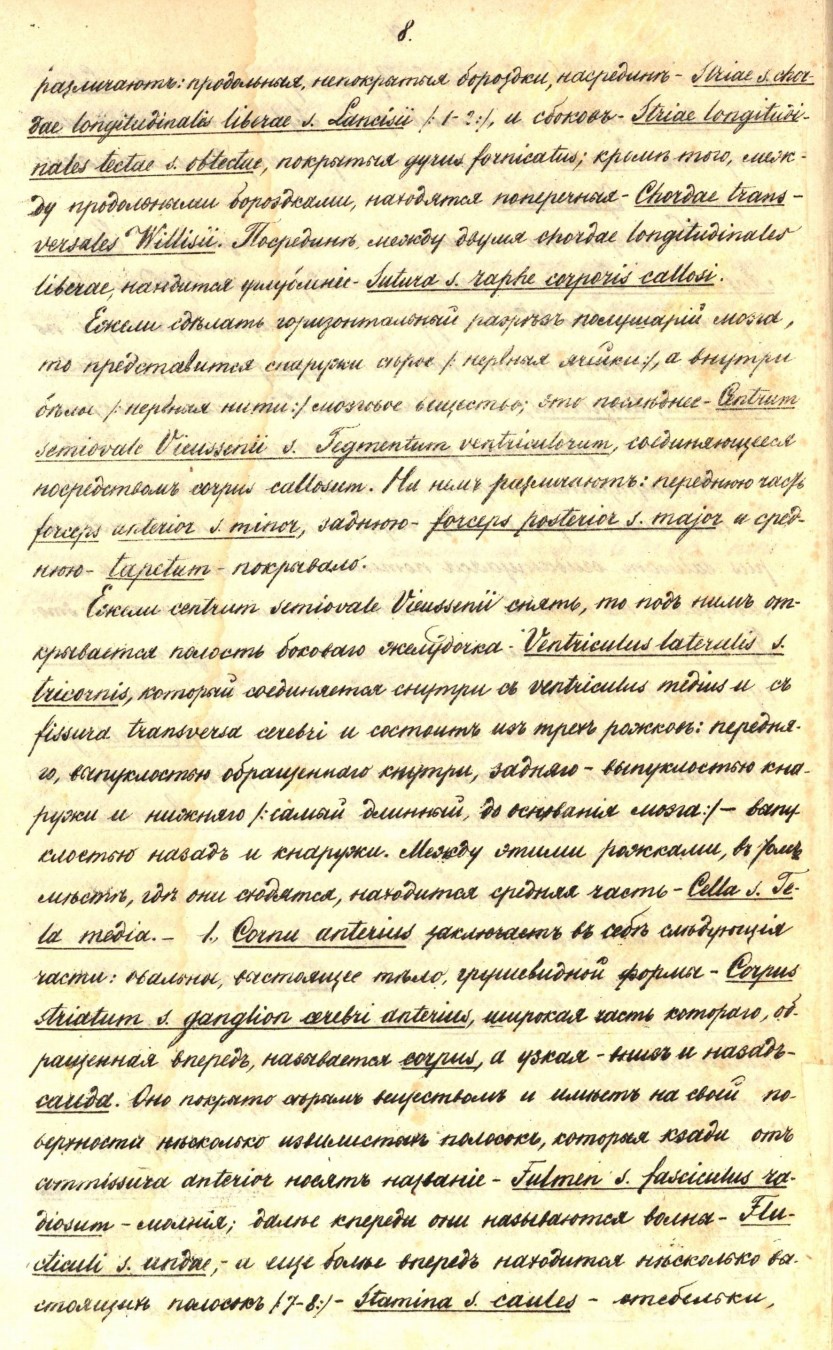 8.
различаютъ: продольныя, непокрытыя бороздки, насрединѣ - Striae s. chor-
dae longitudinalis liberae s. Lancisii /:1-2:/, и сбоковъ - Striae longitudi-
nales tectae s. obtectae, покрытыя gyrus fornicatus; кромѣ того, меж-
ду продольными бороздками, находятся поперечныя - Chordae trans-
versales Willisii. Посрединѣ, между двумя chordae longitudinales
liberae, находится углубленіе - Sutura s. raphe corporis callosi.
Ежели сдѣлать горизонтальный разрѣзъ полушарій мозга,
то представится снаружи сѣрое /:нервныя ячейки:/, а внутри
бѣлое /:нервныя нити:/ мозговое вещество; это послѣднее - Centrum
semiovale Vieussenii s. Tegmentum ventriculorum, соединяющееся
посредствомъ corpus callosum. На немъ различаютъ: переднюю часть
forceps anterior s. minor, заднюю - forceps posterior s. major и сред-
нюю - tapetum - покрывало.
Ежели centrum semiovale Vieussenii снять, то подъ нимъ от-
крывается полость боковаго желудочка - Ventriculus lateralis s.
tricornis, который соединяется снутри съ ventriculus medius и съ
fissura transversa cerebri и состоитъ изъ трехъ рожковъ: передня-
го, выпуклостью обращеннаго кнутри, задняго - выпуклостью кна-
ружи и нижняго /:самый длинный, до основанія мозга:/ - выпу
клостью назадъ и кнаружи. Между этими рожками, въ томъ
мѣстѣ, гдѣ они сходятся, находится средняя часть - Cella s. Te-
la media. - 1, Cornu anterius заключаетъ въ себѣ слѣдующія
части: овальны, выстоящее тѣло, грушевидной формы - Corpus
striatum s. ganglion cerebri anterius, широкая часть котораго, об-
ращенная впередъ, называется corpus, а узкая - внизъ и назадъ -
cauda. Оно покрыто сѣрымъ веществомъ и имѣетъ на своей по-
верхности нѣсколько извилистыхъ полосокъ, которыя кзади отъ
commissura anterior носятъ названіе - Fulmen s. fasciculus ra-
diosum - молнія; далѣе кпереди они называются волны - Flu-
cticuli s. undae, - и еще болѣе впередъ находится нѣсколько вы-
стоящихъ полосокъ /:7-8:/ - Stamina s. caules - стебельки,